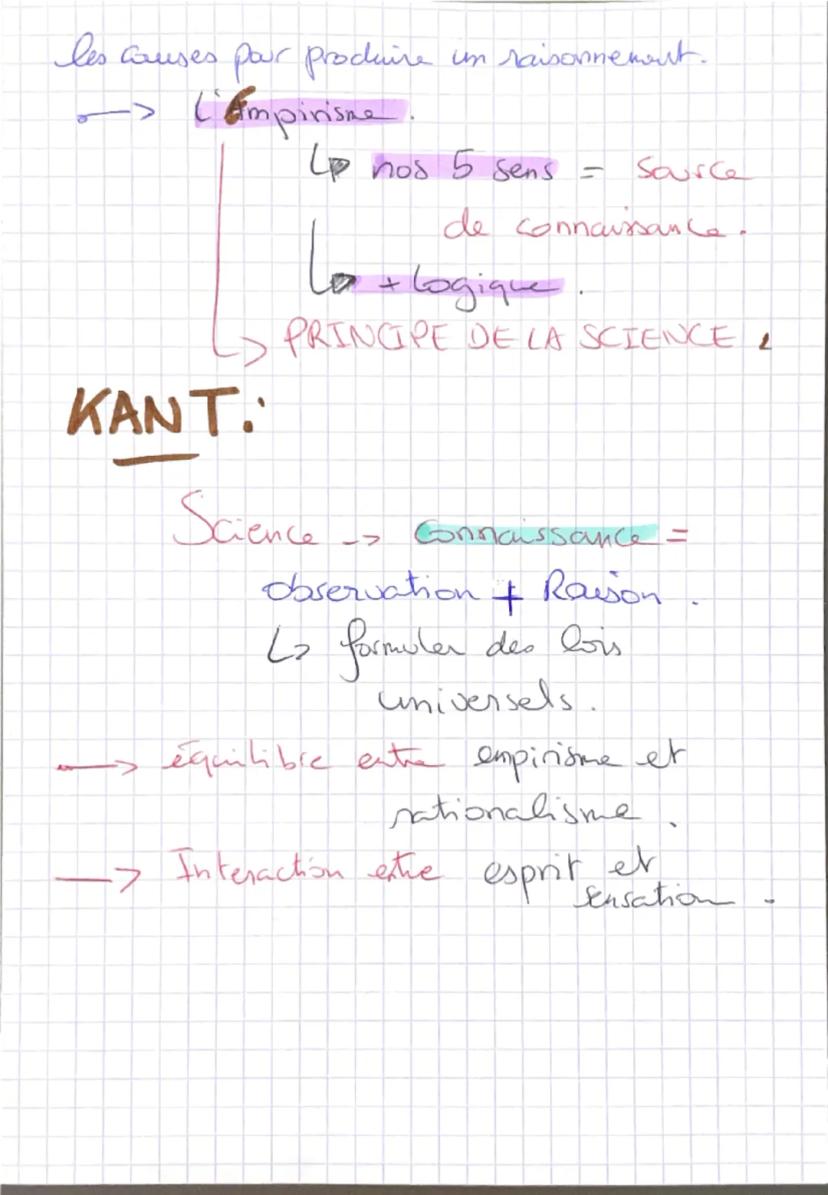 les causes pour produire un raisonnement.
→ L'Empirisme.
↳ nos 5 sens = source
de connaissance.
↳ + Logique.
↳ PRINCIPE DE LA SCIENCE.
KANT:
Science → connaissance =
observation + Raison.
↳ formuler des lois
universels.
→ équilibre entre empirisme et
rationalisme.
→ Interaction entre esprit et
sensation.